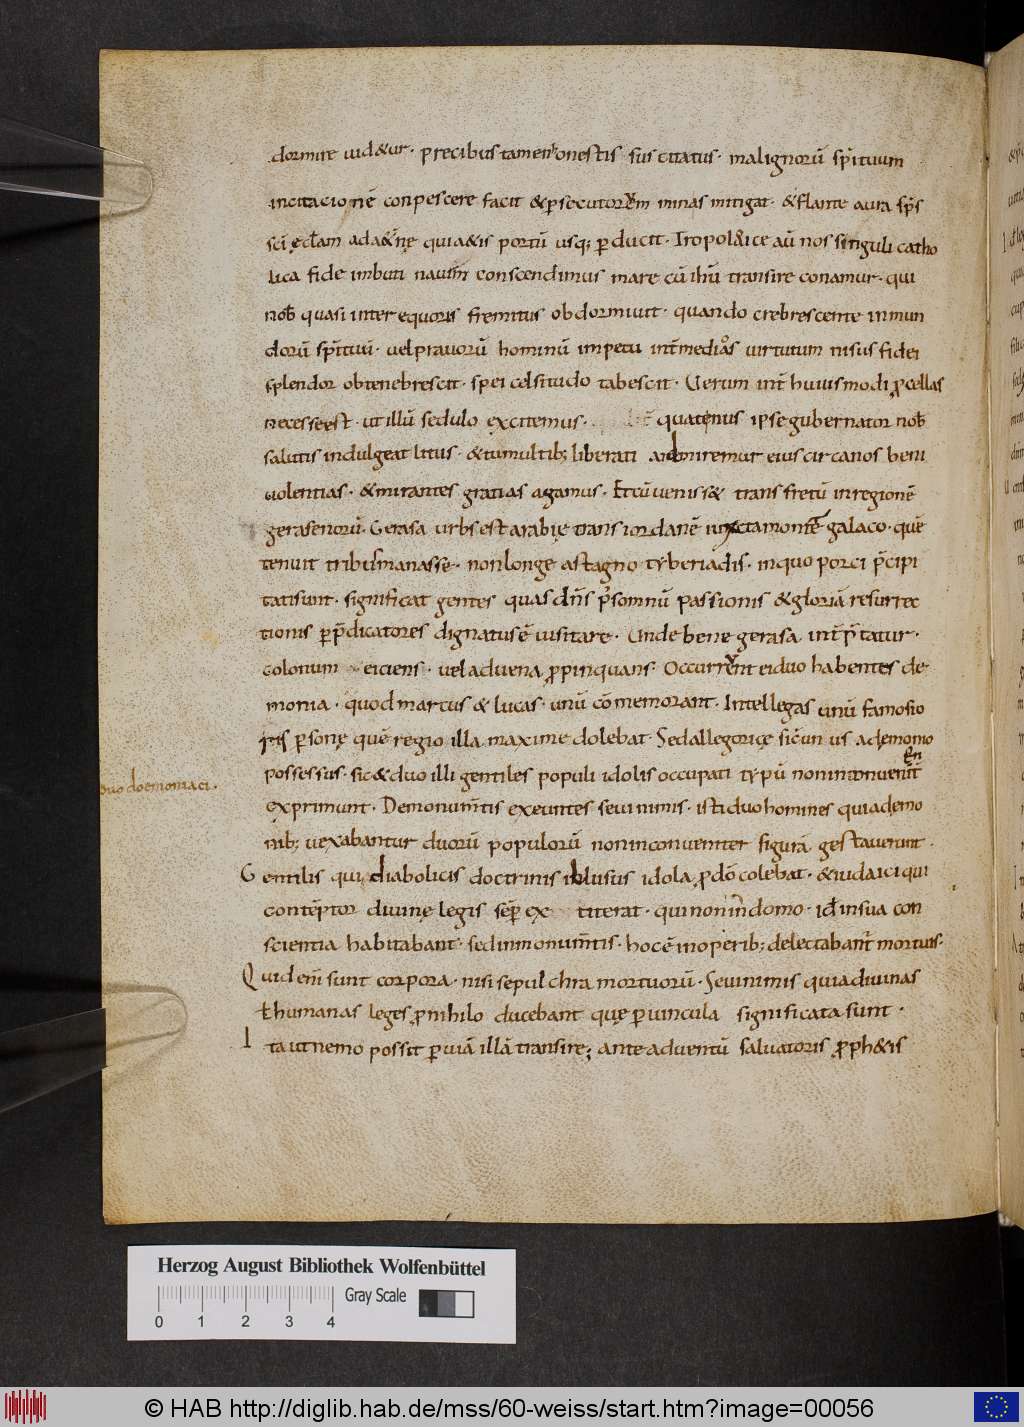 dormire uid&ur · precibus tamen honestis suscitatus · malignorū sp̄irituum
incitacionē conpescere facit & ꝑsecutorum minas mitigat · & flante aura sp̄s
sc̄i ęcl̄am ad a&nę qui&is portū usq; ꝑducit · Tropoloice aū nos singuli catho
lica fide imbuti nauim conscendimus mare cū ih̄u transire conamur · qui
nob̄ quasi inter equoris fremitus obdormiuit · quando crebrescente inmun
dorū sp̄ituū · uel prauorū hominū impetu int̄ medios uirtutum nisus fidei
splendor obtenebrescit · spei celsitudo tabescit · Uerum int̄ huiusmodi ꝓcellas
necesse est · ut illū sedulo excitemus · quatenus ipse gubernator nob̄
salutis indulgeat litus · & tumultib; liberati admiremur eius circa nos beni
uolentias · & mirantes gratias agamus · Et cū uenisse& trans fretū in regionē
gerasenorū · Gerasa urbs est arabię trans iordanē iuncta montē galaco · quē
tenuit tribus manasse · non longe a stagno tyberiadis · in quo porci p̄cipi
tati sunt · significat gentes quas dn̄s p̄ somnū passionis & gloriā resurrec
tionis ꝑ p̄dicatores dignatus ē uisitare · Unde bene gerasa int̄p̄tatur ·
colonum eiciens · uel aduena ꝓpinquans · Occurrerunt ei duo habentes de
monia · quod marcus & lucas · unū cōmemorant · Intellegas unū famosio
ris ꝑsonę quē regio illa maxime dolebat · Sed allegoricę sic̄ un us a demonio
possessus · sic & duo illi gentiles populi idolis occupati typū non inconuenient̄
En
duo doemoniaci ·
exprimunt · De monum̄tis exeuntes seui nimis · isti duo homines qui a demo
nib; uexabantur duorū populorū non inconueniter figurā gestauerunt ·
Gentilis qui diabolicis doctrinis illusus idola ꝓ dō colebat · & iudaici qui
contēptor diuinę legis semꝑ extiterat · qui non in domo · id ē in sua con
scientia habitabant · sed in monum̄tis · hoc ē in operib; delectabant̄ mortuis ·
Quid enī sunt corpora · nisi sepulchra mortuorū · Seui nimis quia diuinas
et humanas leges ꝓ nihilo ducebant quę ꝑ uincula significata sunt ·
Ita ut nemo possit ꝑ uiā illā transire; ante aduentū saluatoris ꝓph&is
Herzog August Bibliothek Wolfenbüttel
Gray Scale
0 1 2 3 4
© HAB http://diglib.hab.de/mss/60-weiss/start.htm?image=00056